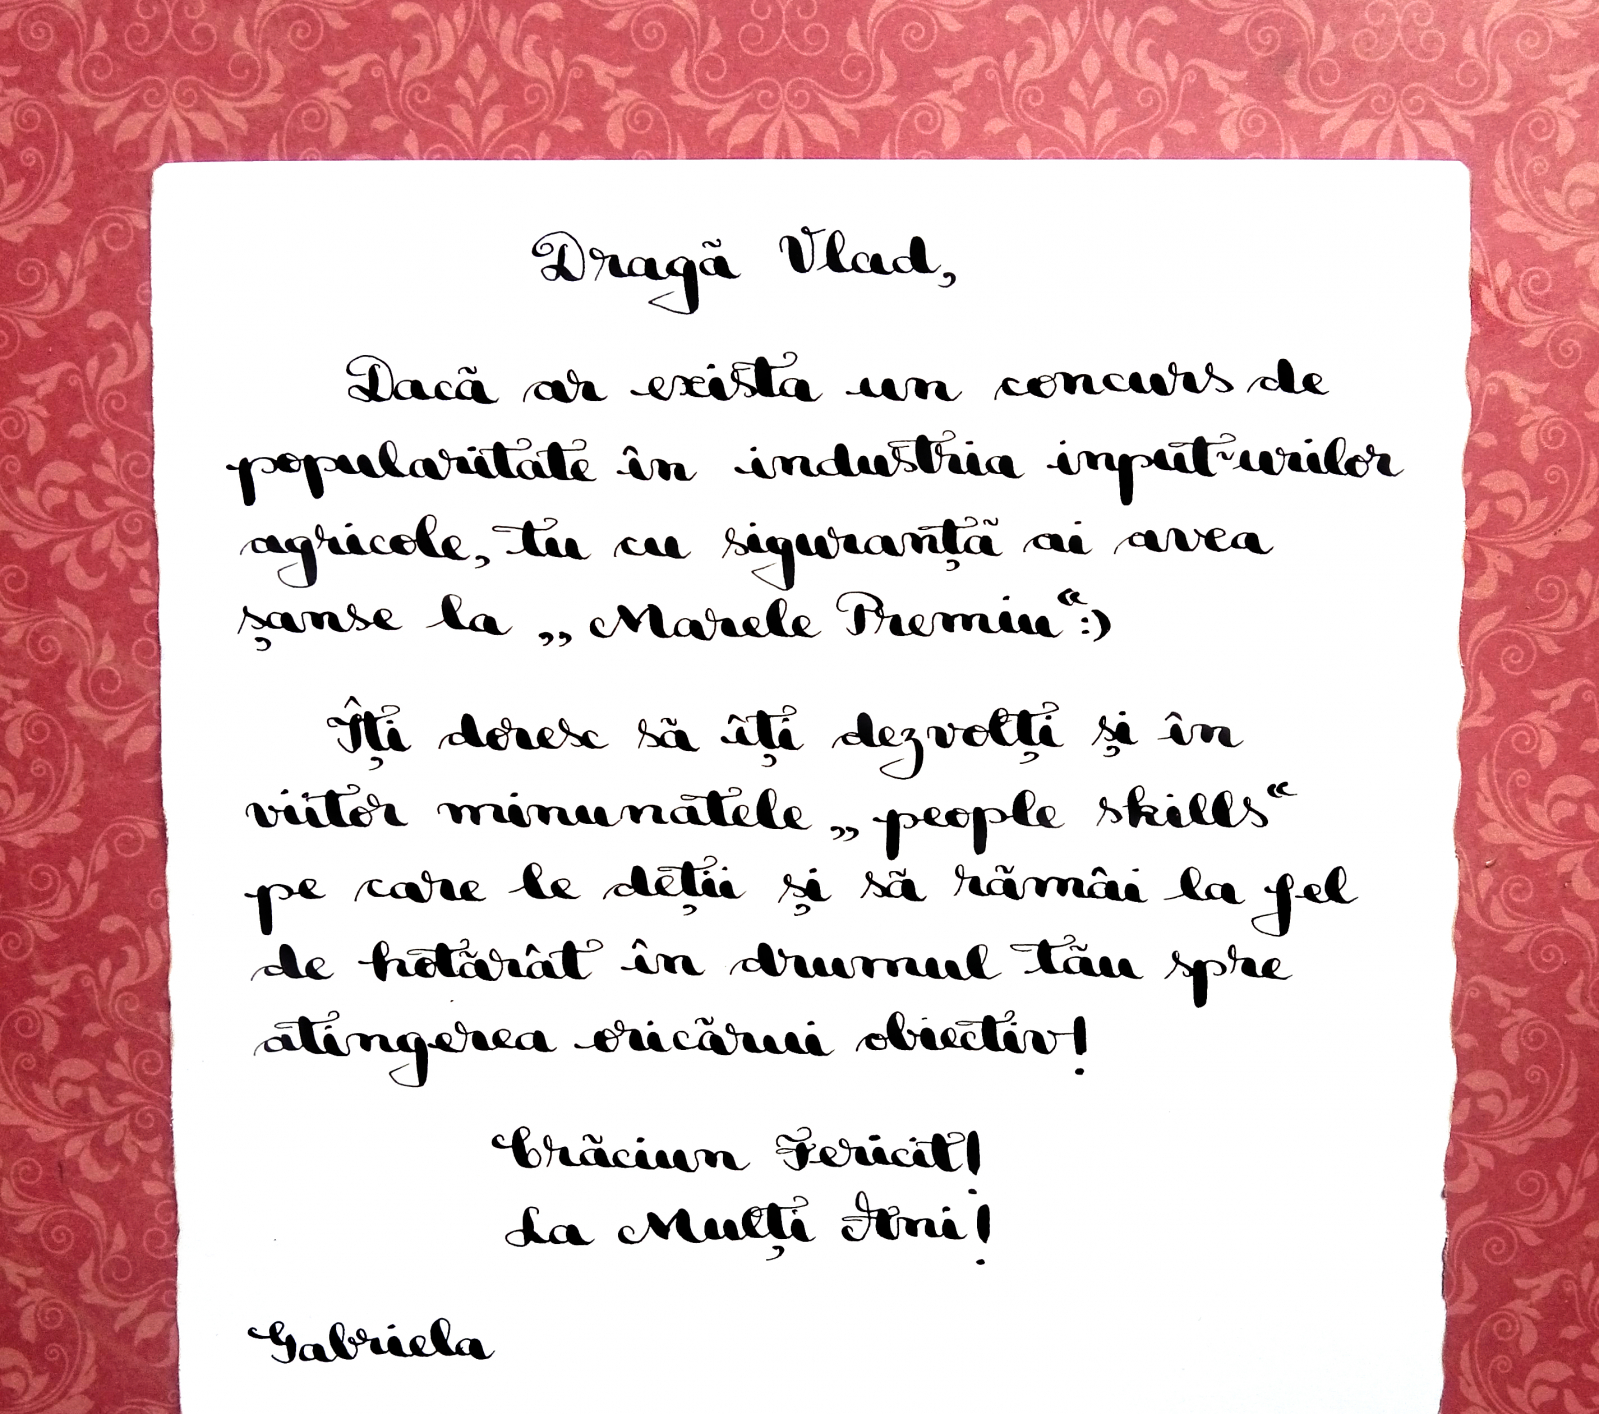 Dragă Vlad,
Dacă ar exista un concurs de
popularitate în industria input-urilor
agricole, tu cu siguranță ai avea
șanse la „Marele Premiu“:)
Îți doresc să îți dezvolți și în
viitor minunatele „people skills“
pe care le deții și să rămâi la fel
de hotărât în drumul tău spre
atingerea oricărui obiectiv!
Crăciun Fericit!
La Mulți Ani!
Gabriela